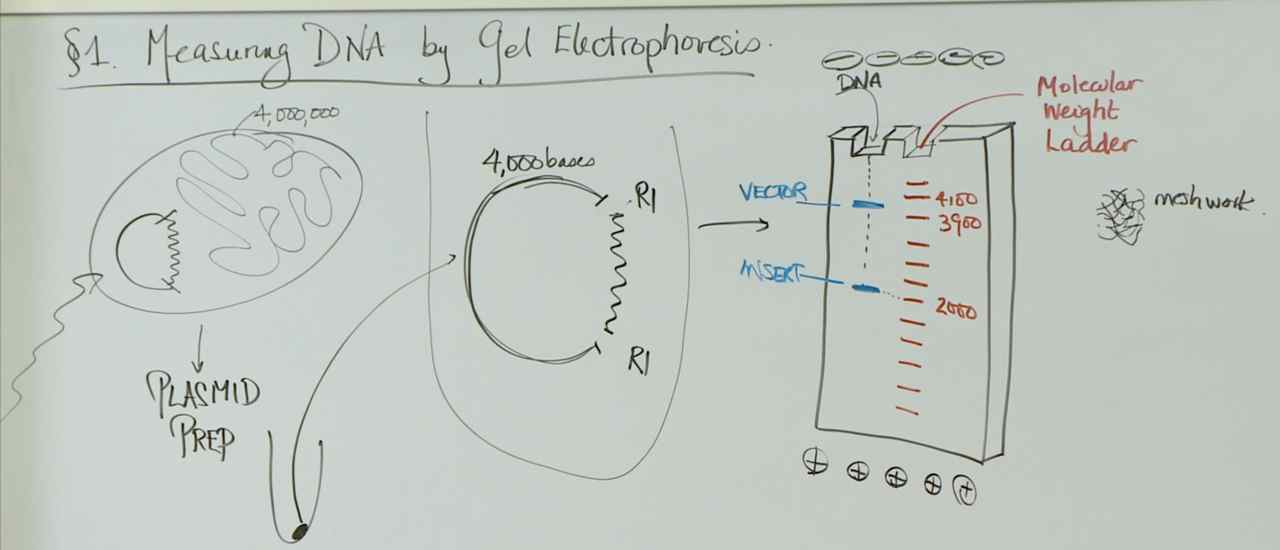 §1. Measuring DNA by Gel Electrophoresis.
4,000,000
PLASMID
PREP
4,000 bases
R1
R1
DNA
Molecular
Weight
Ladder
VECTOR
INSERT
4100
3900
2000
meshwork.